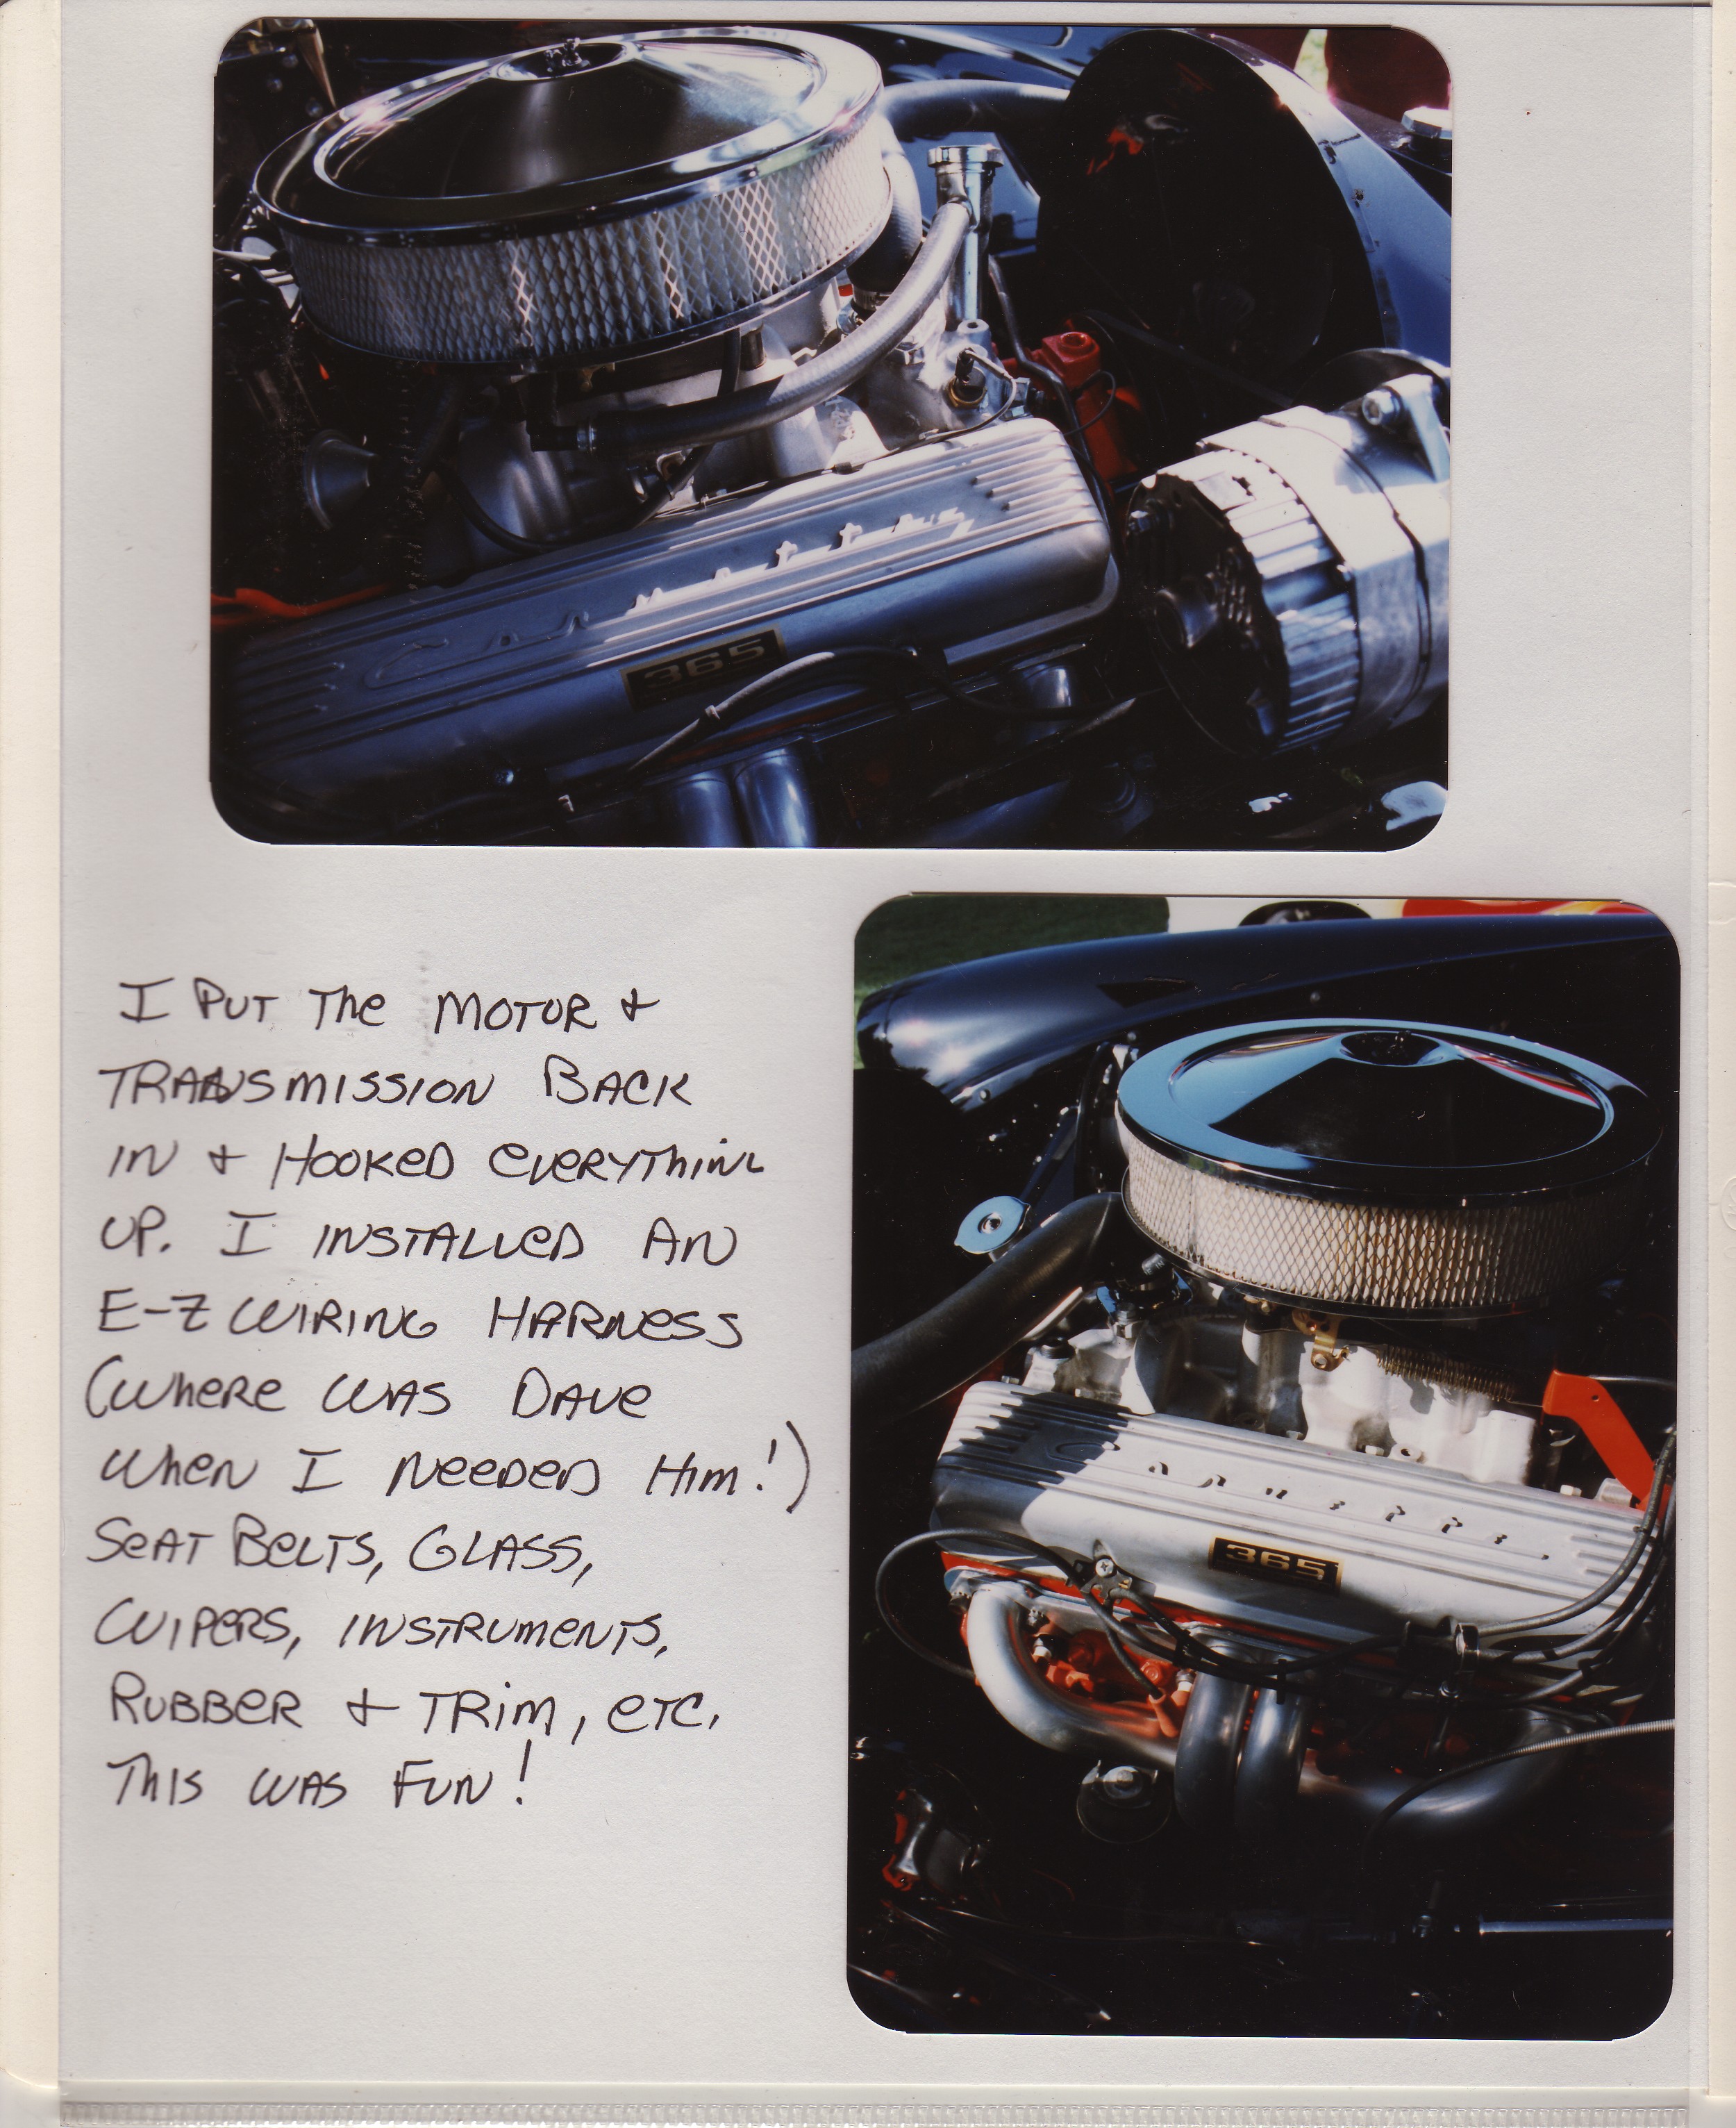 Corvette
365
I PUT The MOTOR &
TRANSMISSION BACK
IN & HOOKED EVERYTHING
UP. I INSTALLED AN
E-Z WIRING HARNESS
(WHERE WAS DAVE
WHEN I NEEDED HIM!)
SEAT BELTS, GLASS,
WIPERS, INSTRUMENTS,
RUBBER & TRIM, ETC.
THIS WAS FUN!
Corvette
365